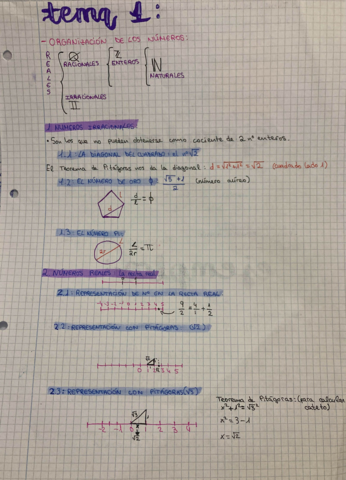 tema 1:
- ORGANIZACIÓN DE LOS NÚMEROS:
REALES
Q
RACIONALES
Z
ENTEROS
N
NATURALES
IRRACIONALES
II
1 NÚMEROS IRRACIONALES
• Son los que no pueden obtenerse como cociente de 2 nº enteros.
1.1 LA DIAGONAL DEL CUADRADO: el nº √2
El Teorema de Pitágoras nos da la diagonal: d = √1²+1² = √2 (cuadrado lado 1)
1.2: EL NÚMERO DE ORO ϕ: √5+1/2 (número aúreo)
d/l = ϕ
1.3: EL NÚMERO PI:
2r
L/2r = π
2 NÚMEROS REALES: la recta real
2.1: REPRESENTACIÓN DE Nº EN LA RECTA REAL
9/2 = 4/1 + 1/2
2.2: REPRESENTACIÓN CON PITÁGORAS (√2)
0 1 2 3 4 5
2.3: REPRESENTACIÓN CON PITÁGORAS (√3)
√3
-2 -1 0 1 2 3 4
√2
Teorema de Pitágoras: (para calcular cateto)
x² + 1² = √3²
x² = 3 - 1
x = √2